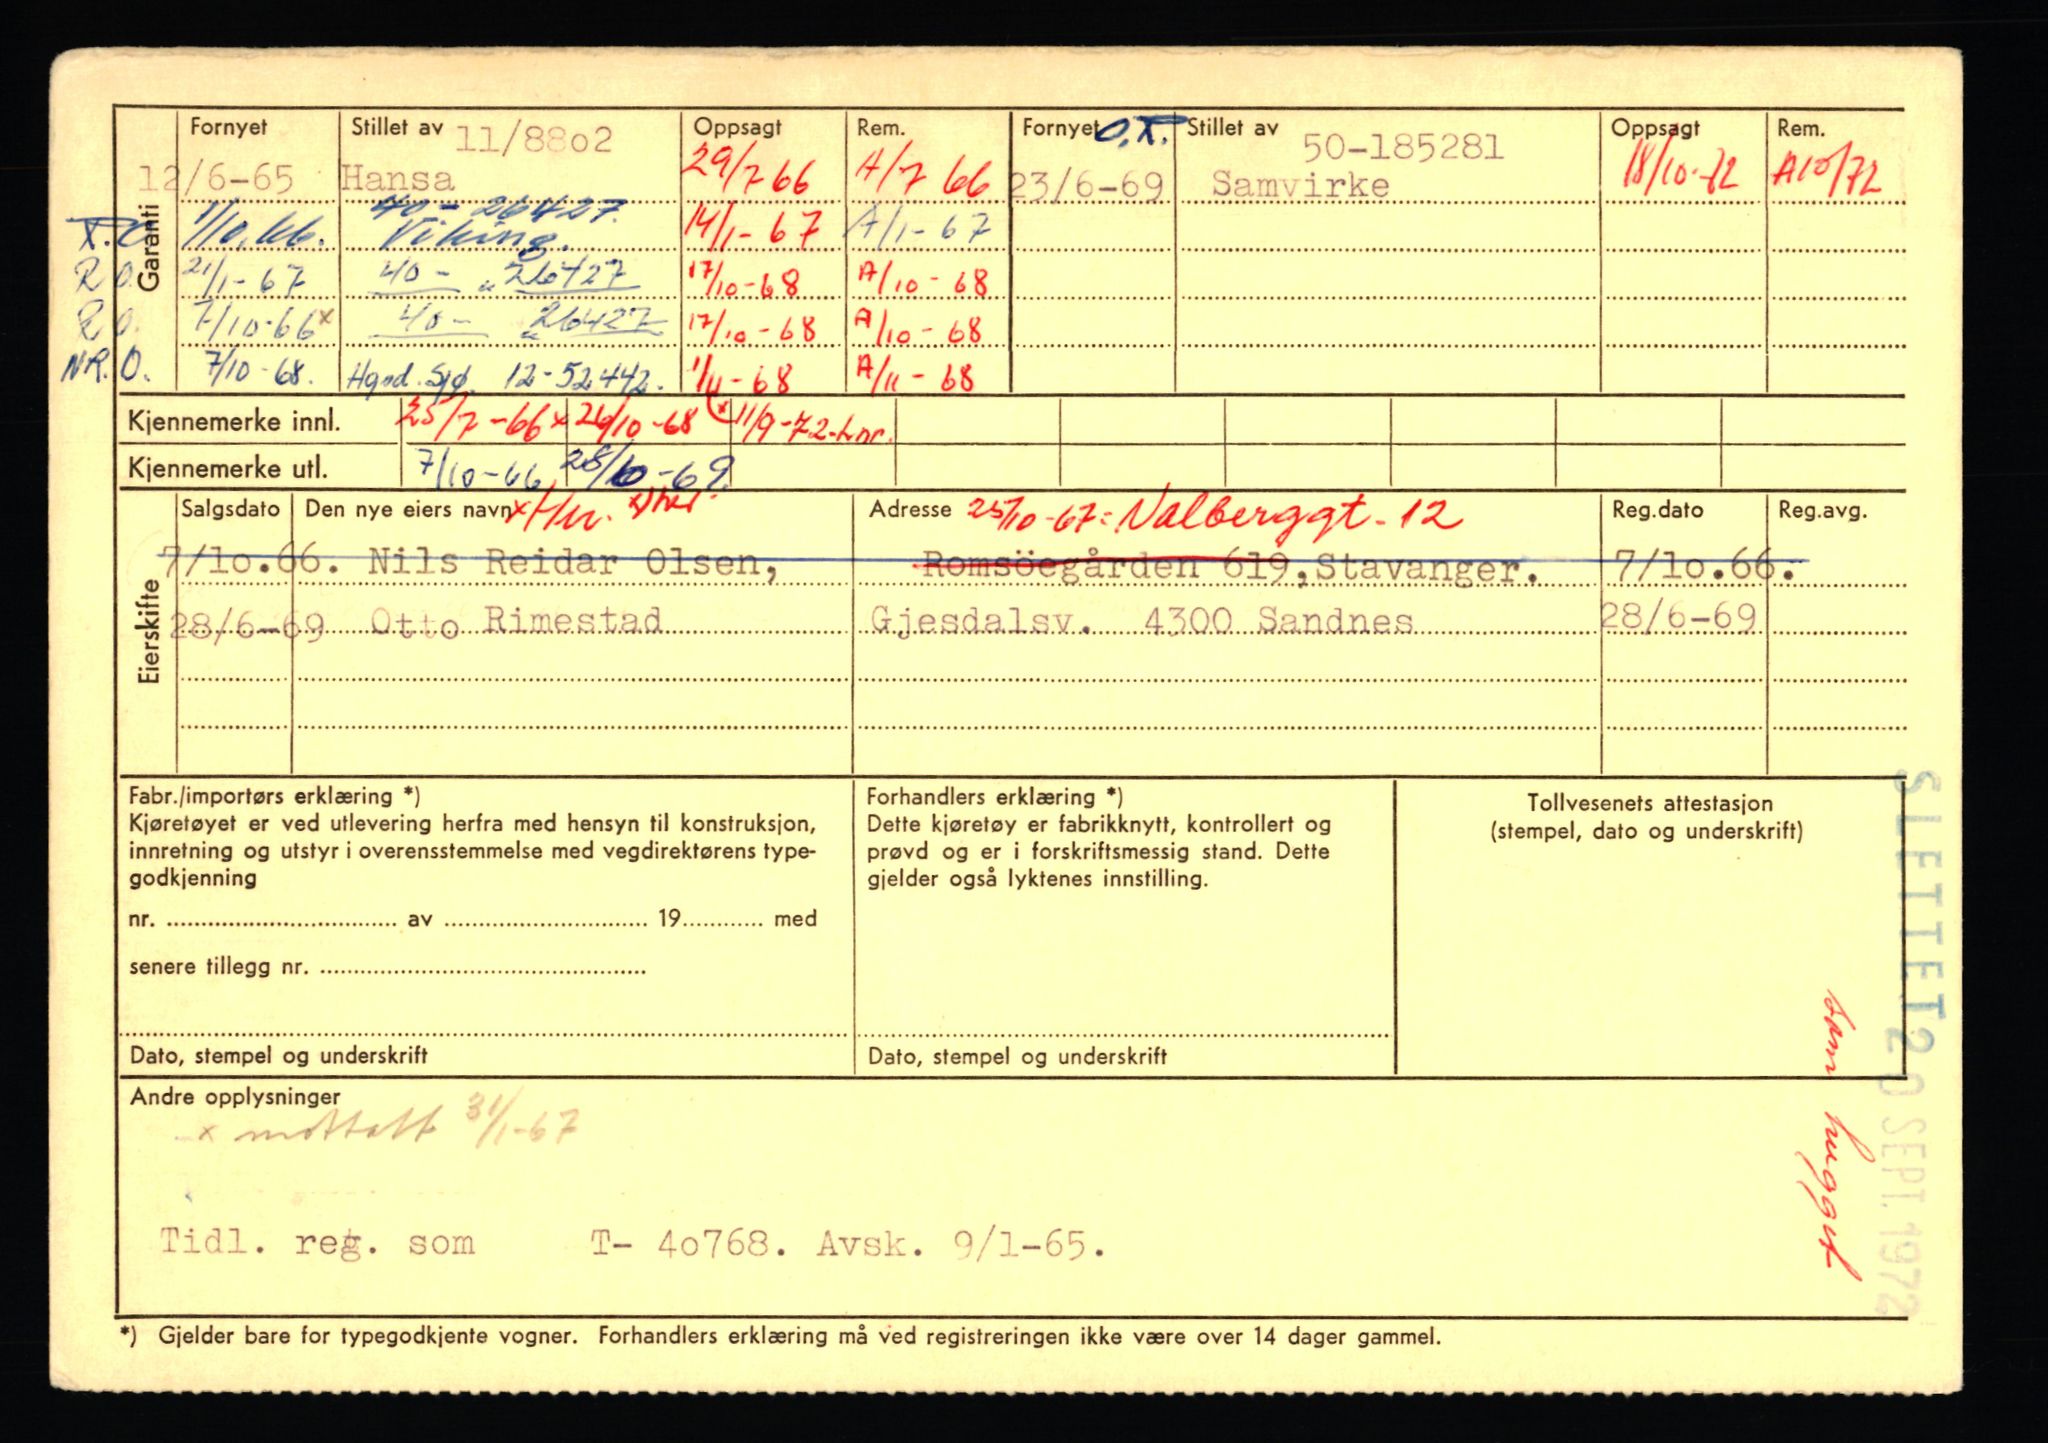 Garanti
Fornyet Stillet av 11/88o2 Oppsagt Rem. Fornyet Stillet av 50-185281 Oppsagt Rem.
12/6-65 Hansa 29/7 66 A/7 66 23/6-69 Samvirke 18/10-72 A10/72
40-26427.
1/10.66. Viking. 14/1-67 A/1-67
R O. 21/1-67 40- " 26427 17/10-68 A/10-68
R O. 7/10-66x 40- " 26427 17/10-68 A/10-68
NR. O. 7/10-68. Hgsd. Sjø. 12-52442. 1/11-68 A/11-68
Kjennemerke innl. 25/7-66 x 26/10-68 (x 11/9-72-Lnr.
Kjennemerke utl. 7/10-66 28/6-69.
Eierskifte
Salgsdato Den nye eiers navn Adresse 25/10-67: Valberggt. 12 Reg.dato Reg.avg.
7/1o.66. Nils Reidar Olsen, Romsöegården 619,Stavanger. 7/1o.66.
28/6-69 Otto Rimestad Gjesdalsv. 4300 Sandnes 28/6-69
Fabr./importørs erklæring *)
Kjøretøyet er ved utlevering herfra med hensyn til konstruksjon,
innretning og utstyr i overensstemmelse med vegdirektørens type-
godkjenning
nr. av 19 med
senere tillegg nr.
Dato, stempel og underskrift
Forhandlers erklæring *)
Dette kjøretøy er fabrikknytt, kontrollert og
prøvd og er i forskriftsmessig stand. Dette
gjelder også lyktenes innstilling.
Dato, stempel og underskrift
Tollvesenets attestasjon
(stempel, dato og underskrift)
SLETTET 20 SEPT. 1972
som hugget
Andre opplysninger
x mottatt 31/1-67
Tidl. reg. som T- 4o768. Avsk. 9/1-65.
*) Gjelder bare for typegodkjente vogner. Forhandlers erklæring må ved registreringen ikke være over 14 dager gammel.